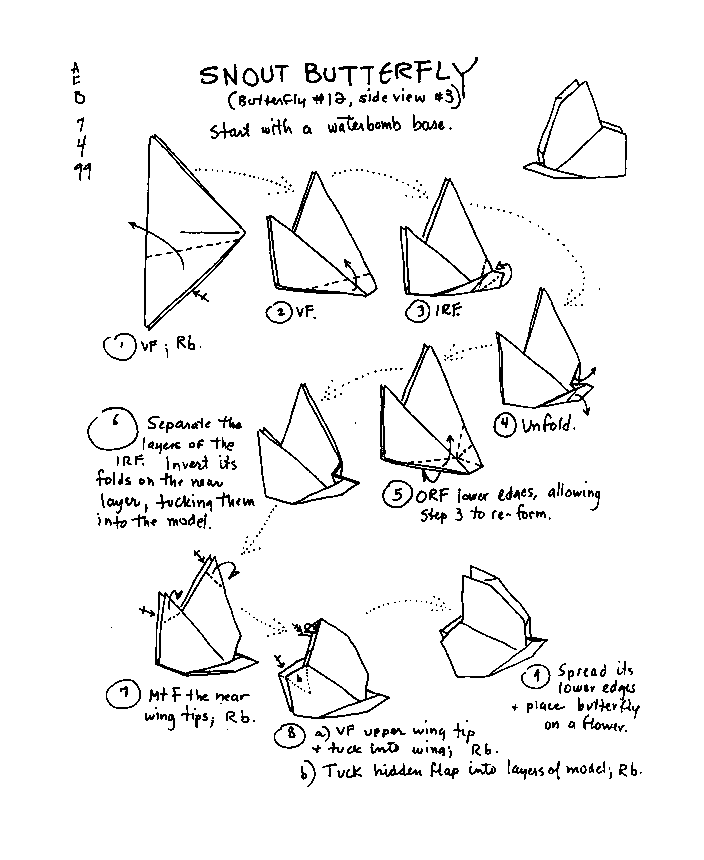 A
E
B
7
4
99
SNOUT BUTTERFLY
(Butterfly #12, side view #3)
Start with a waterbomb base.
1 VF; Rb.
2 VF.
3 IRF.
4 Unfold.
5 ORF lower edges, allowing
Step 3 to re-form.
6 Separate the
layers of the
IRF. Invert its
folds on the near
layer, tucking them
into the model.
7 Mt F the near
wing tips; Rb.
8 a) VF upper wing tip
+ tuck into wing; Rb.
b) Tuck hidden flap into layers of model; Rb.
9 Spread its
lower edges
+ place butterfly
on a flower.